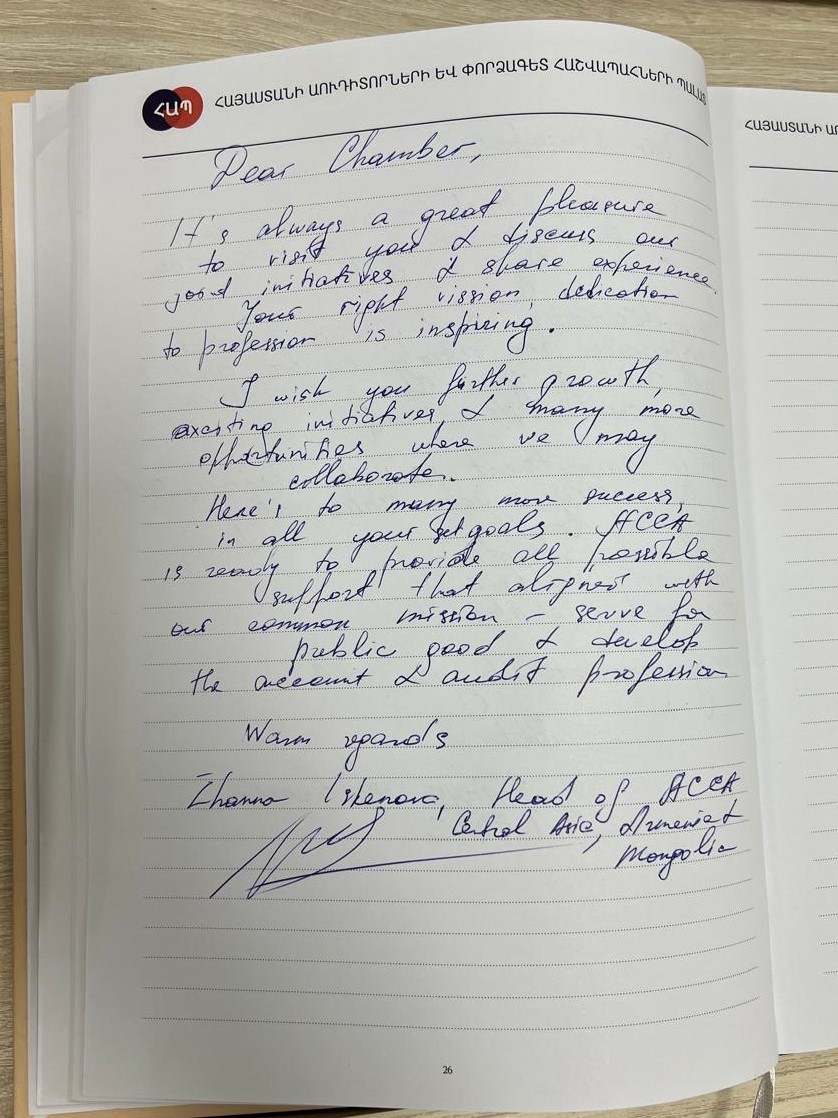 ՀԱՊ
ՀԱՅԱՍՏԱՆԻ ԱՈՒԴԻՏՈՐՆԵՐԻ ԵՎ ՓՈՐՁԱԳԵՏ ՀԱՇՎԱՊԱՀՆԵՐԻ ՊԱԼԱՏ
Dear Chamber,
It's always a great pleasure
to visit you & discuss our
joint initiatives & share experience.
Your right vission, dedication
to profession is inspiring.
I wish you further growth,
exciting initiatives & many more
opportunities where we may
collaborate.
Here's to many more success,
in all your set goals. ACCA
is ready to provide all possible
support that aligned with
our common mission – serve for
public good & develop
the account & audit profession
Warm regards
Zhanna Iskenova, Head of ACCA
Central Asia, Armenia &
Mongolia
26
ՀԱՅԱՍՏԱՆԻ